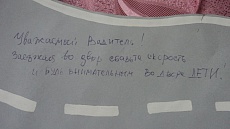 Уважаемый Водитель!
Заезжая во двор сбавьте скорость
и будь внимательнее Вокруг ДЕТИ.